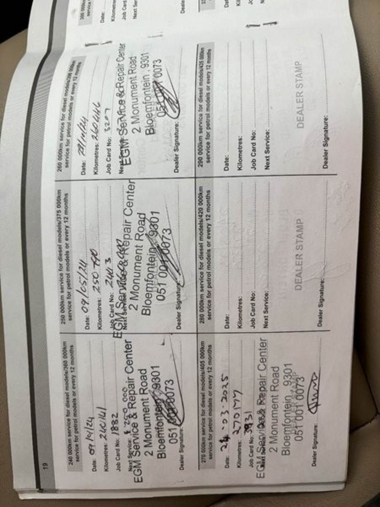 19
240 000km service for diesel models/360 000km
service for petrol models or every 12 months
Date:
Kilometres:
Job Card No: 1882
Next Service:
EGM Service & Repair Center
2 Monument Road
Bloemfontein, 9301
051 001 0073
Dealer Signature:
250 000km service for diesel models/375 000km
service for petrol models or every 12 months
Date: 09/05/24
Kilometres:
Job Card No:
EGM Service & Repair Center
2 Monument Road
Bloemfontein, 9301
051 001 0073
Dealer Signature:
260 000km service for diesel models/
service for petrol models or every 12 months
Date:
Kilometres:
Job Card No:
Next Service:
EGM Service & Repair Center
2 Monument Road
Bloemfontein, 9301
051 001 0073
Dealer Signature:
270 000km service for diesel models/405 000km
service for petrol models or every 12 months
Date: 24-03-2025
Kilometres:
Job Card No:
EGM Service & Repair Center
2 Monument Road
Bloemfontein, 9301
051 001 0073
Dealer Signature:
280 000km service for diesel models/420 000km
service for petrol models or every 12 months
Date:
Kilometres:
Job Card No:
Next Service:
DEALER STAMP
Dealer Signature:
290 000km service for diesel models/435 000km
service for petrol models or every 12 months
Date:
Kilometres:
Job Card No:
Next Service:
DEALER STAMP
Dealer Signature: